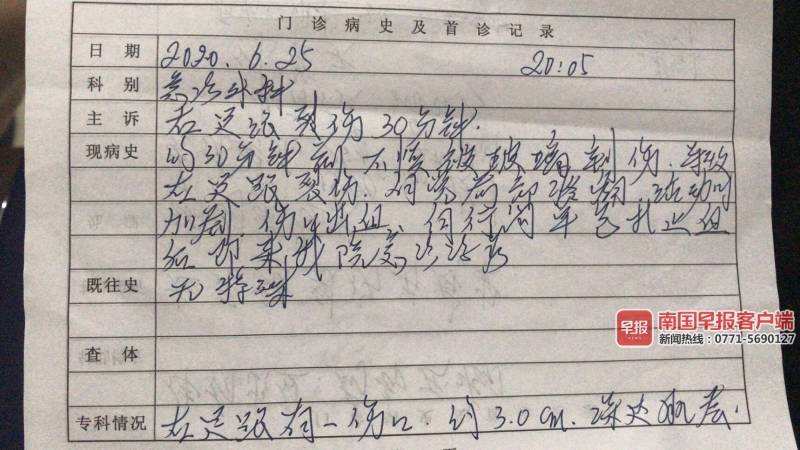 门诊病史及首诊记录
日期 2020.6.25 20:05
科别 急诊外科
主诉 右足跟裂伤30分钟.
现病史 约30分钟前不慎被玻璃割伤.导致
右足跟裂伤.对伤局部疼痛.活动时
加剧.伤口出血.自行简单包扎止血
后即来我院急诊治疗
既往史 无特殊
早报 南国早报客户端
NEWS 新闻热线:0771-5690127
查体
专科情况 右足跟有一伤口.约3.0cm.深达肌层.